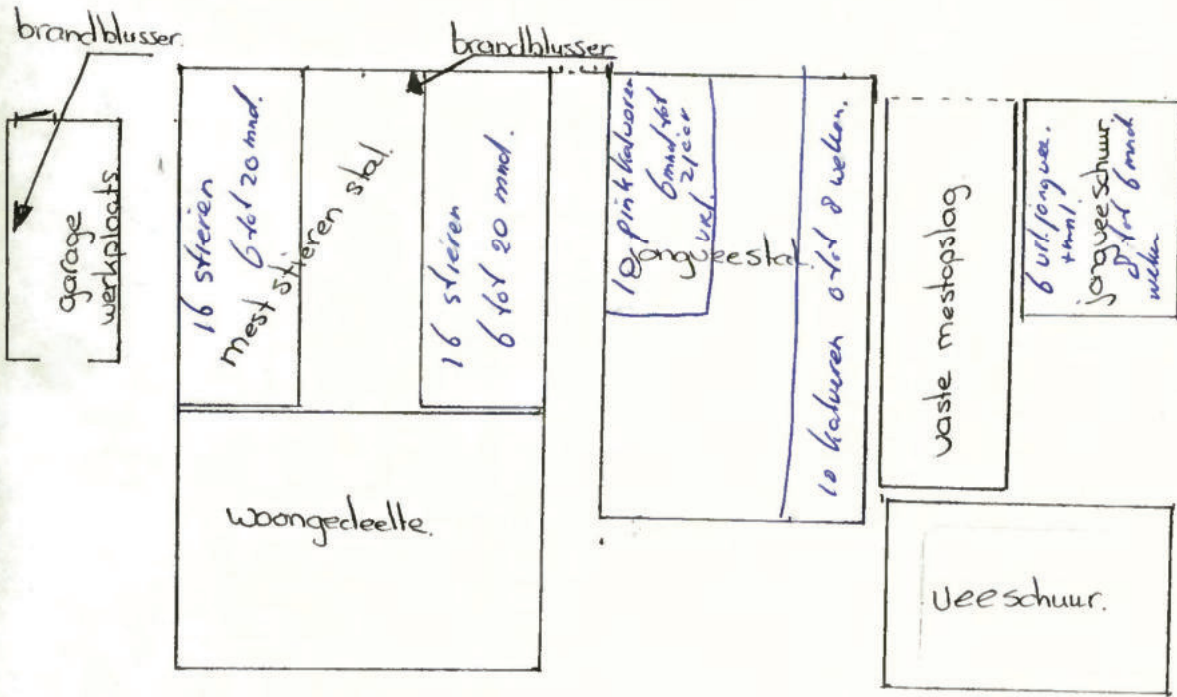 brandblusser.
brandblusser
garage
werkplaats.
16 stieren
6 tot 20 mnd.
mest stieren stal.
16 stieren
6 tot 20 mnd.
10 pink kalveren
6 mnd tot
vrl.
jongveestal.
10 kalveren 0 tot 8 weken.
vaste mestopslag
6 vrl. jongvee.
+ mnl.
jongveeschuur
8 tot 6 mnd
weken
woongedeelte.
veeschuur.